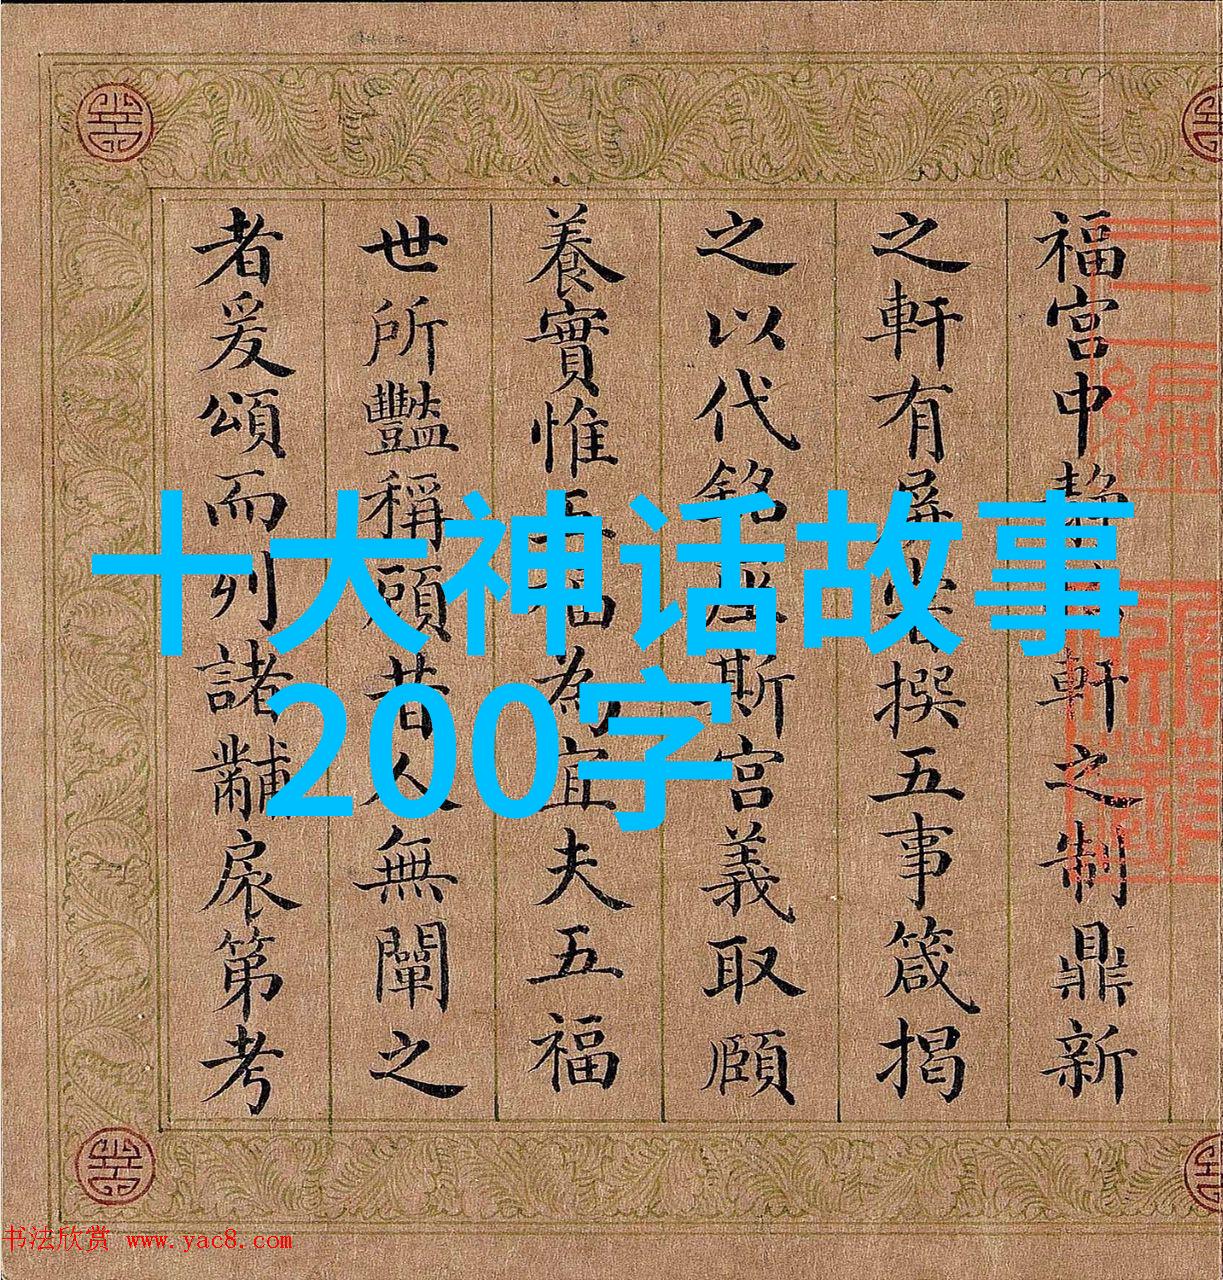 十大神话故事
200字
福宫中靜軒之制鼎新
之軒有屏撰五事箴揭
之以代銘座斯宫義取頤
養實惟五福為宜夫五福
世所豔稱頋昔人無闡之
者爰頌而列諸黼扆第考
书法欣赏 www.yac8.com